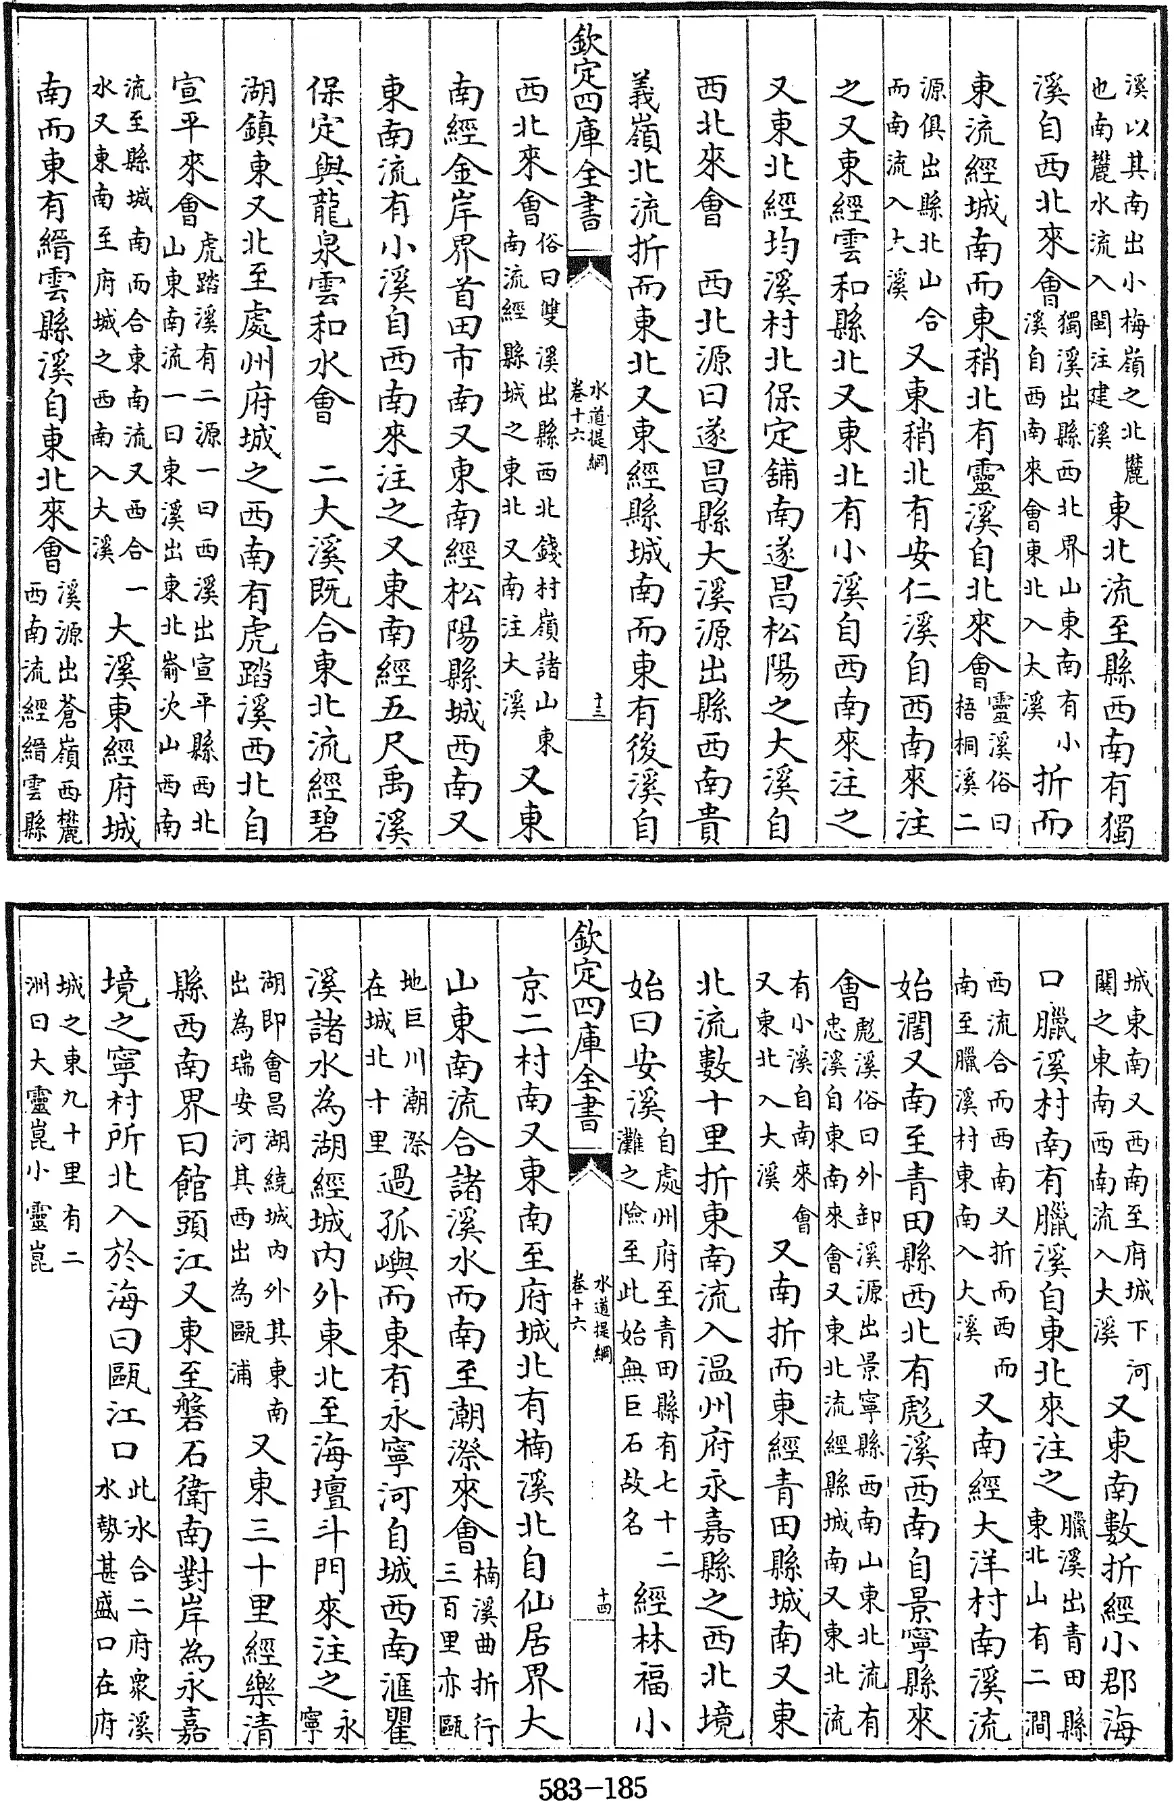 溪以其南出小梅嶺之北麓也南麓水流入閩注建溪東北流至縣西南有獨
溪自西北來會獨溪出縣西北界山東南有小溪自西南來會東北入大溪折而
東流經城南而東稍北有靈溪自北來會靈溪俗曰梧桐溪二
源俱出縣北山合而南流入大溪又東稍北有安仁溪自西南來注
之又東經雲和縣北又東北有小溪自西南來注之
又東北經均溪村北保定舖南遂昌松陽之大溪自
西北來會 西北源曰遂昌縣大溪源出縣西南貴
義嶺北流折而東北又東經縣城南而東有後溪自
欽定四庫全書 水道提綱 卷十六 十三
西北來會俗曰雙溪出縣西北錢村嶺諸山東南流經縣城之東北又南注大溪又東
南經金岸界首田市南又東南經松陽縣城西南又
東南流有小溪自西南來注之又東南經五尺禹溪
保定與龍泉雲和水會 二大溪既合東北流經碧
湖鎮東又北至處州府城之西南有虎踏溪西北自
宣平來會虎踏溪有二源一曰西溪出宣平縣西北山東南流一曰東溪出東北嵛次山西南
流至縣城南而合東南流又西合一水又東南至府城之西南入大溪大溪東經府城
南而東有縉雲縣溪自東北來會溪源出蒼嶺西麓西南流經縉雲縣
城東南又西南至府城下河關之東南西南流入大溪又東南數折經小郡海
口臘溪村南有臘溪自東北來注之臘溪出青田縣東北山有二澗
西流合而西南又折而西而南至臘溪村東南入大溪又南經大洋村南溪流
始濶又南至青田縣西北有彪溪西南自景寧縣來
會彪溪俗曰外卸溪源出景寧縣西南山東北流有忠溪自東南來會又東北流經縣城南又東北流
有小溪自南來會又東北入大溪又南折而東經青田縣城南又東
北流數十里折東南流入温州府永嘉縣之西北境
始曰安溪自處州府至青田縣有七十二灘之險至此始無巨石故名經林福小
欽定四庫全書 水道提綱 卷十六 十四
京二村南又東南至府城北有楠溪北自仙居界大
山東南流合諸溪水而南至潮漈來會楠溪曲折行三百里亦甌
地巨川潮漈在城北十里過孤嶼而東有永寧河自城西南滙瞿
溪諸水為湖經城内外東北至海壇斗門來注之永寧
湖即會昌湖繞城内外其東南出為瑞安河其西出為甌浦又東三十里經樂清
縣西南界曰館頭江又東至磐石衛南對岸為永嘉
境之寧村所北入於海曰甌江口此水合二府衆溪水勢甚盛口在府
城之東九十里有二洲曰大靈崑小靈崑
583-185